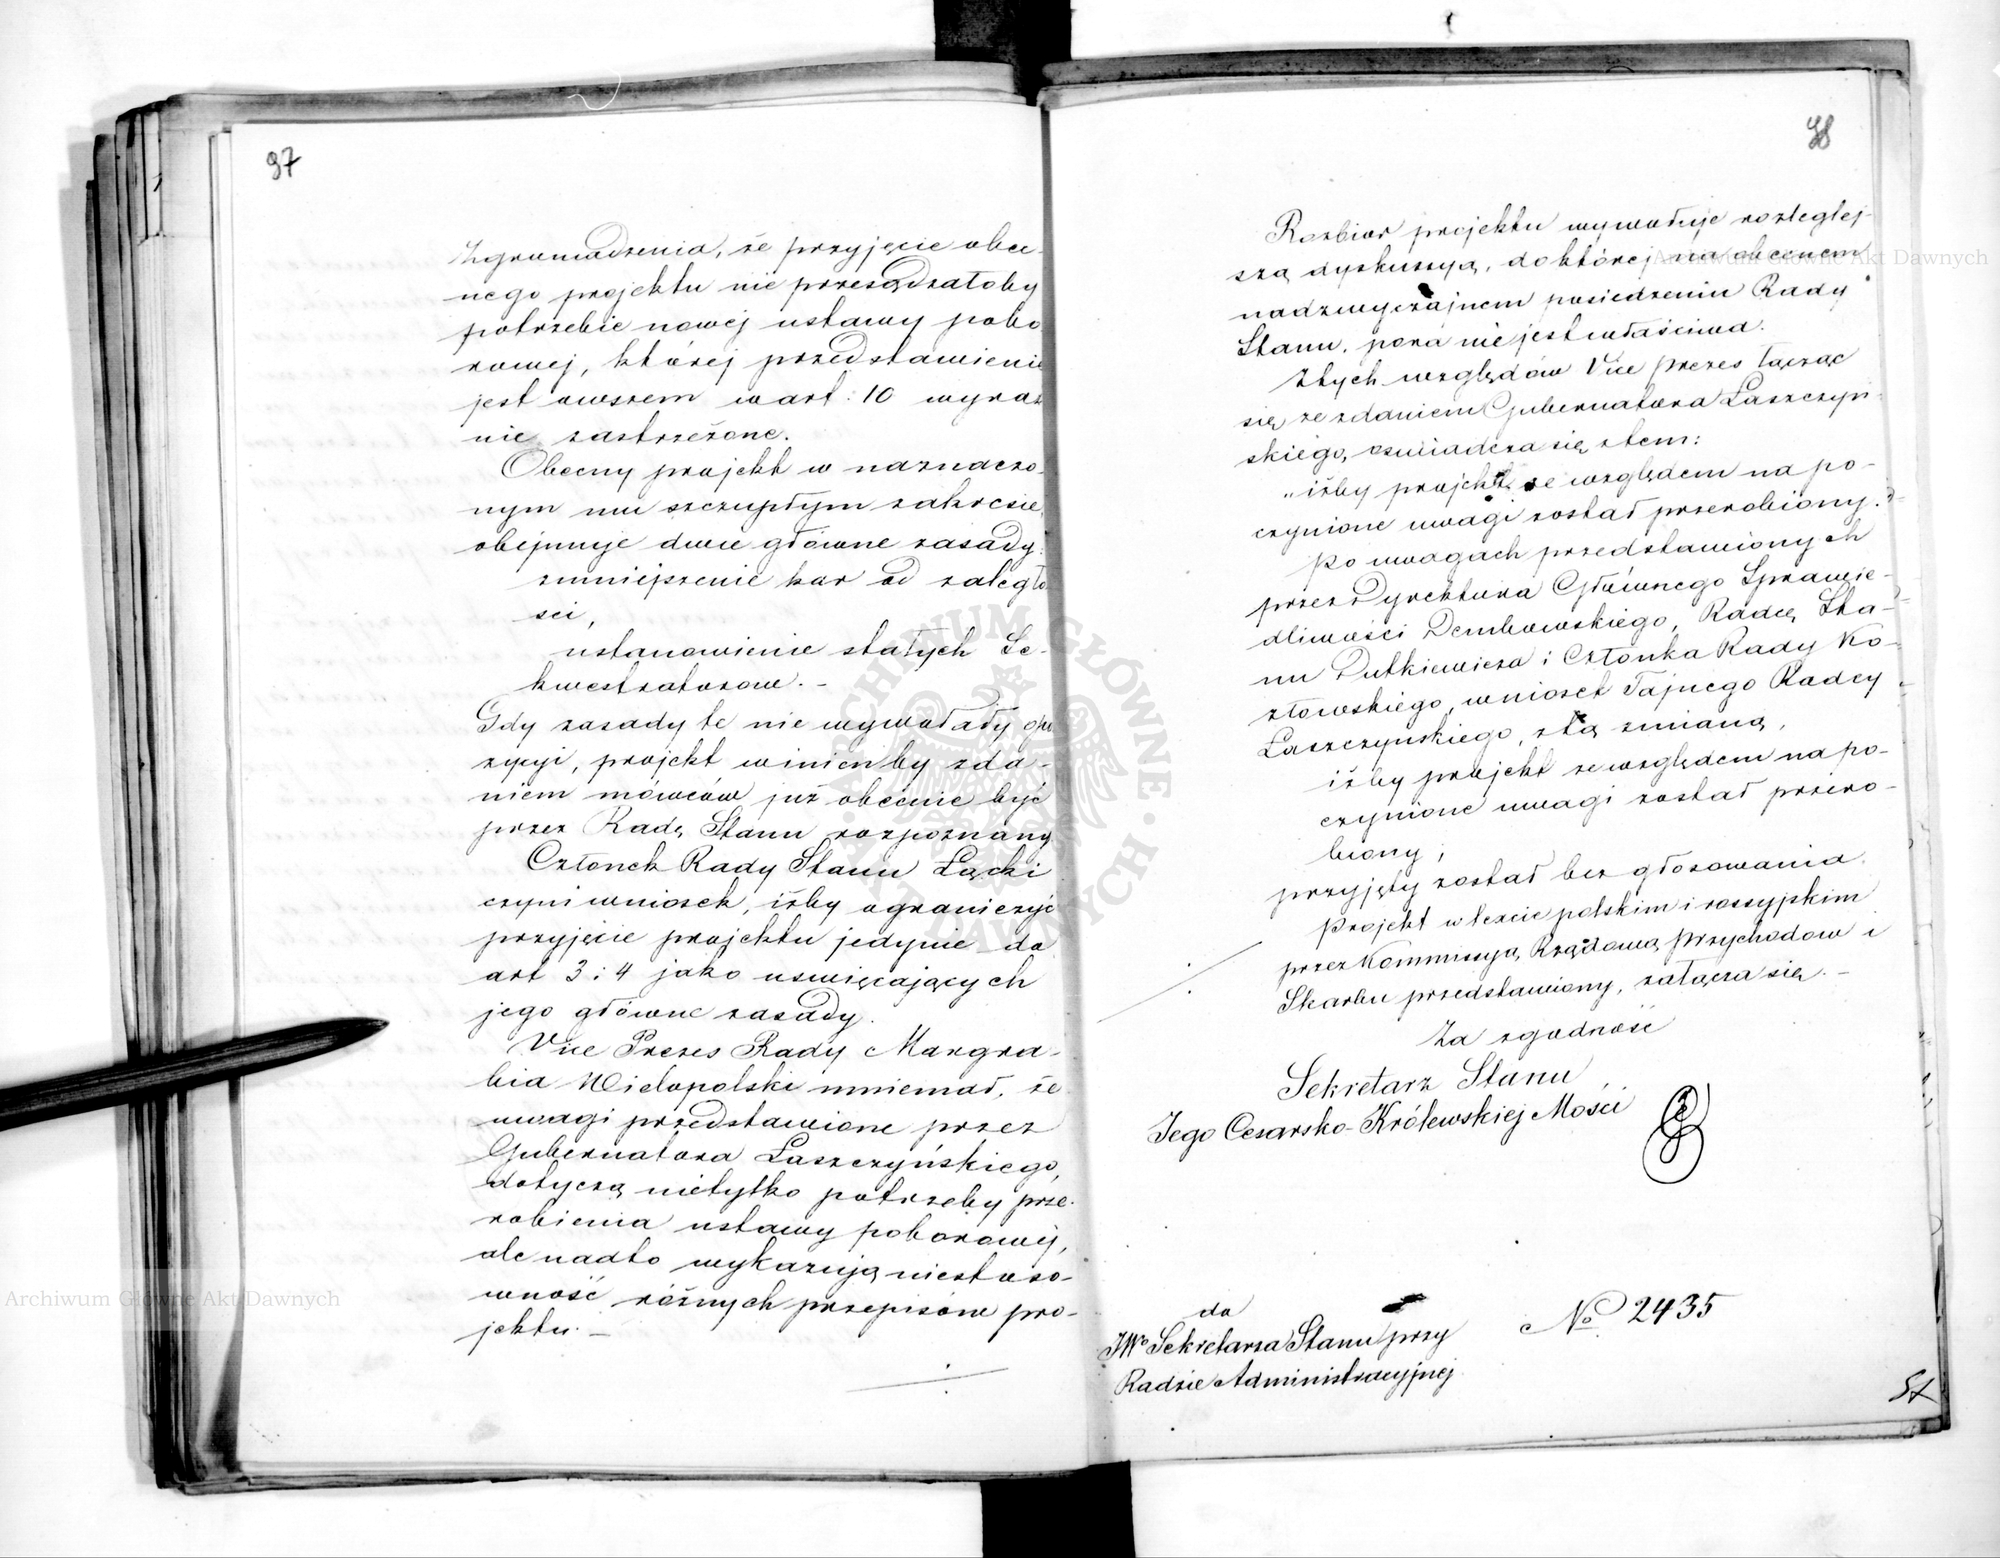 97
Zgromadzenia, że przyjęcie obec-
nego projektu nie przesądzałoby
potrzebie nowej ustawy pobo
rowej, której przedstawienie
jest owszem w art: 10 wyraź
nie zastrzeżone.
Obecny projekt w naznaczo-
nym mu szczupłym zakresie,
obejmuje dwie główne zasady:
zmniejszenie kar od zaległo
ści,
ustanowienie stałych Se-
kwestratorów. -
Gdy zasady te nie wywołały opo
zycyi, projekt winienby zda-
niem mówców już obecnie być
przez Radę Stanu rozpoznany
Członek Rady Stanu Łącki
czyni wniosek, iżby ograniczyć
przyjęcie projektu jedynie do
art 3 i 4 jako uswięcających
jego główne zasady.
Vice Prezes Rady Margra-
bia Wielopolski mniemał, że
uwagi przedstawione przez
Gubernatora Łaszczyńskiego,
dotyczą nietylko potrzeby prze-
robienia ustawy poborowej,
ale nadto wykazują niestoso-
wność różnych przepisów pro-
jektu. -
98
Rozbiór projektu wywołuje rozleglej-
szą dyskussyą, do której na obecnem
nadzwyczajnem posiedzeniu Rady
Stanu, pora nie jest właściwa.
Z tych względów Vice prezes łącząc
się ze zdaniem Gubernatora Łaszczyń-
skiego, oswiadcza się z tem:
"iżby projekt ze względem na po-
czynione uwagi został przerobiony."
Po uwagach przedstawionych
przez Dyrektora Głównego Sprawie-
dliwości Dembowskiego, Radcę Sta-
nu Dutkiewicza i Członka Rady Ko-
złowskiego, wniosek Tajnego Radcy
Łaszczynskiego, z tą zmianą,
iżby projekt ze względem na po-
czynione uwagi został przero-
biony;
przyjęty został bez głosowania.
Projekt w texcie polskim i rossyjskim
przez Kommissyą Rządową Przychodów i
Skarbu przedstawiony, załącza się. -
Za zgodność
Sekretarz Stanu
Jego Cesarsko-Królewskiej Mości
do
JWo Sekretarza Stanu przy
Radzie Administracyjnej
No 2435
Archiwum Główne Akt Dawnych
Archiwum Główne Akt Dawnych
ARCHIWUM GŁÓWNE AKT DAWNYCH